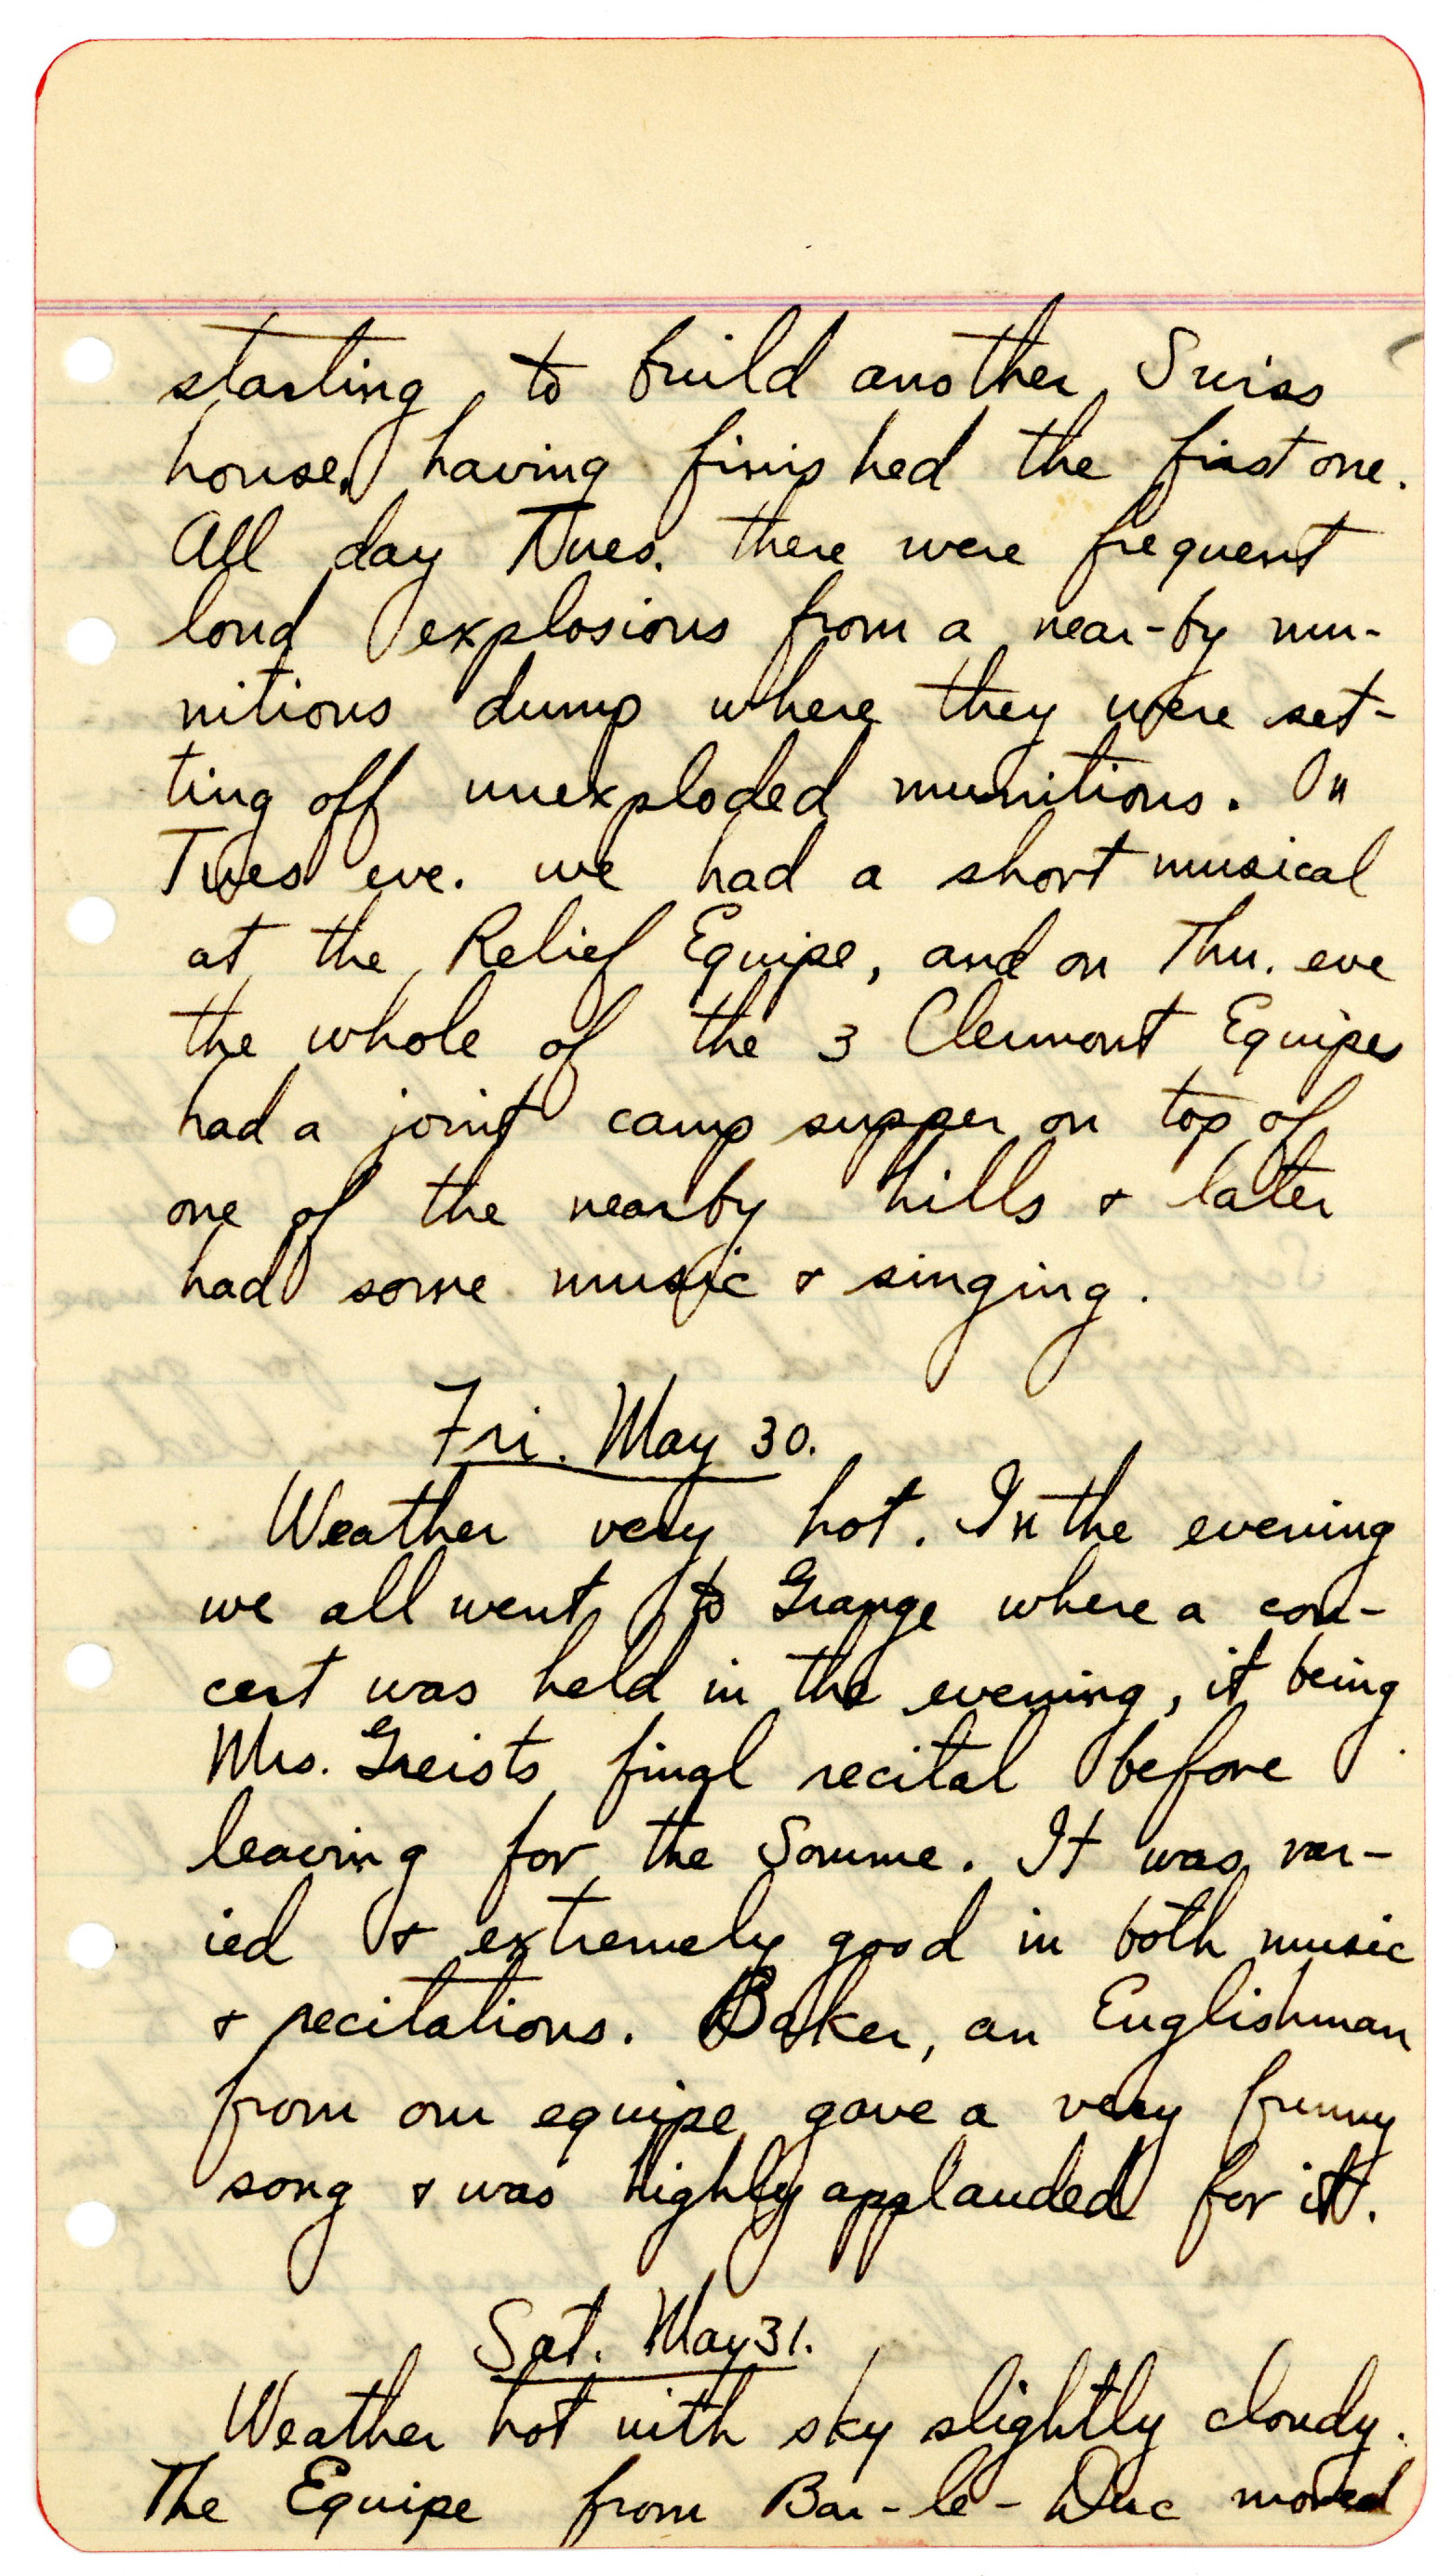 starting to build another Swiss
house, having finished the first one.
All day Tues. there were frequent
loud explosions from a near-by mu-
nitions dump where they were set-
ting off unexploded munitions. On
Tues eve. we had a short musical
at the Relief Equipe, and on Thu. eve
the whole of the 3 Clermont Equipes
had a joint camp supper on top of
one of the nearby hills & later
had some music & singing.
Fri. May 30.
Weather very hot. In the evening
we all went to Grange where a con-
cert was held in the evening, it being
Mrs. Greists final recital before
leaving for the Somme. It was var-
ied & extremely good in both music
& recitations. Baker, an Englishman
from our equipe gave a very funny
song & was highly applauded for it.
Sat. May 31.
Weather hot with sky slightly cloudy.
The Equipe from Bar-le-Duc moved